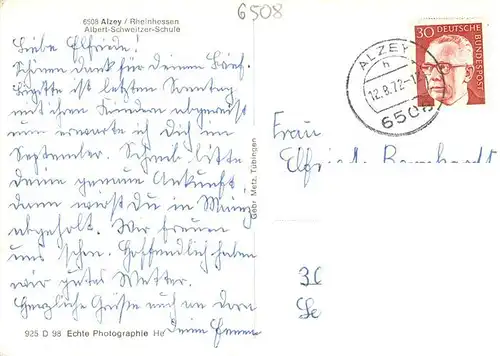 6508
6508 Alzey / Rheinhessen
Albert-Schweitzer-Schule
Liebe Elfriede!
Schönen Dank für deinen Brief.
Brigitte ist letzten Sonntag
mit ihren Kindern abgereist
nun erwarte ich dich im
September. Schreib bitte
deine genaue Ankunft
dann wirst du in Mainz
abgeholt. Wir freuen
uns schon. Hoffentlich haben
wir gutes Wetter.
Herzliche Grüße auch an
deine
925 D 98 Echte Photographie He
Gebr Metz, Tübingen
ALZEY
h
12.8.72-1
6508
30 DEUTSCHE BUNDESPOST
Frau
Elfried